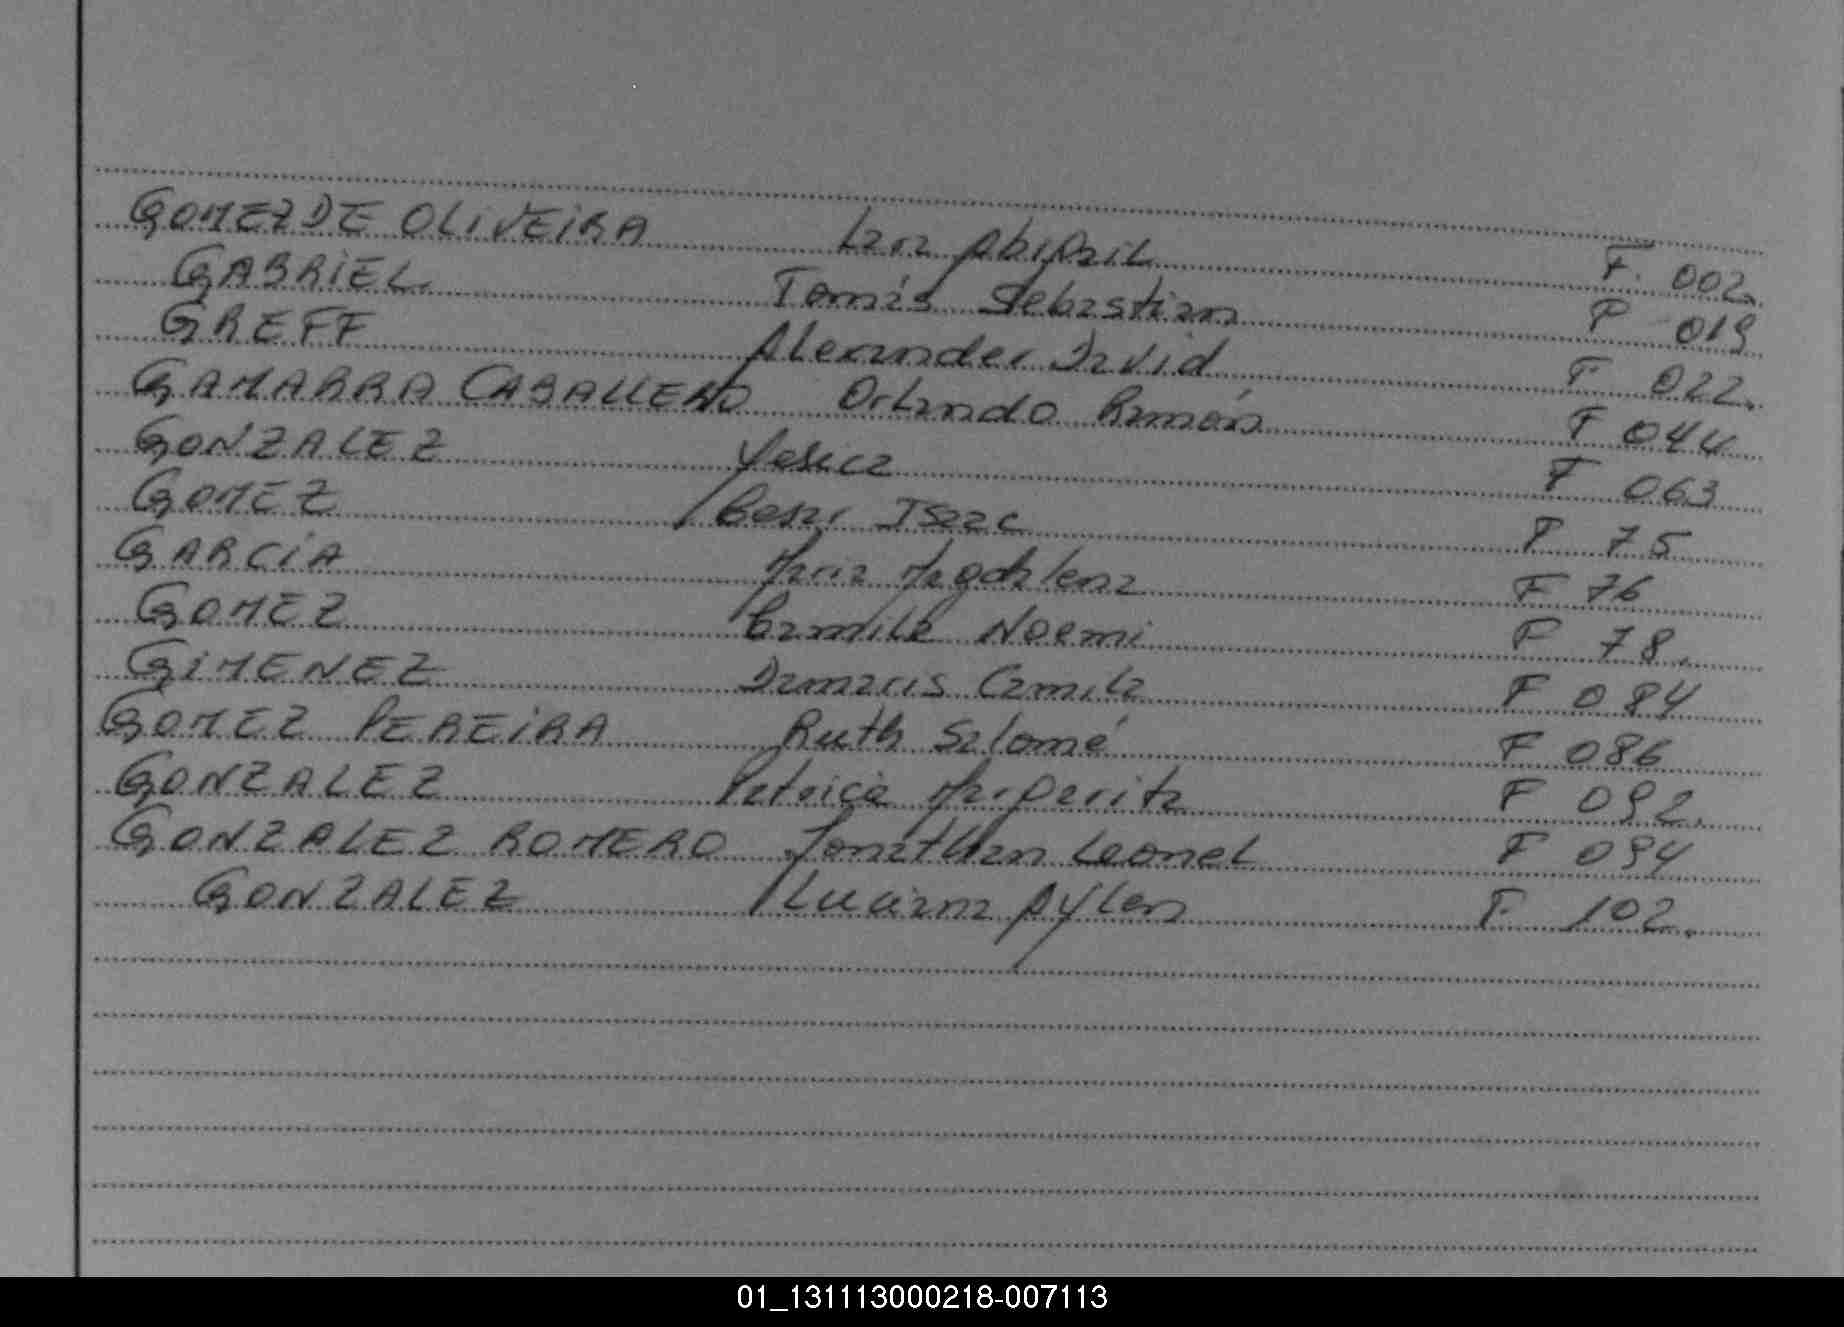 GOMEZ DE OLIVEIRA Lara Abigail F. 002.
GABRIEL. Tomás Sebastian F 019
GREFF Alexander David F 022.
GAMARRA CABALLERO Orlando Ramón F 044
GONZALEZ Yesica F 063
GOMEZ Cesar Isaac F 75
GARCIA Maria Magdalena F 76
GOMEZ Camila Noemi F 78.
GIMENEZ Damaris Camila F 084
GOMEZ PEREIRA Ruth Salomé F 086
GONZALEZ Patricia Margarita F 092.
GONZALEZ ROMERO Jonathan Leonel F 094
GONZALEZ Luciana Aylen F. 102.
01_131113000218-007113